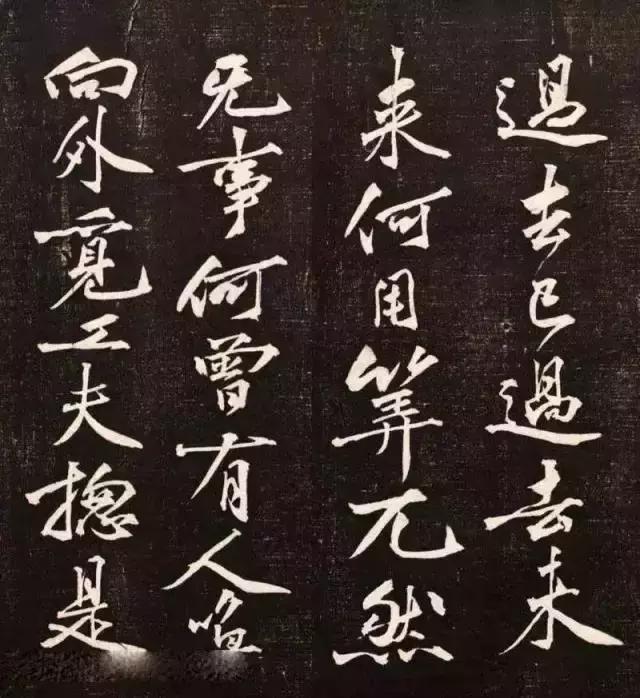 過去已過去未
来何用筭兀然
无事何曾有人喚
向外覓工夫捴是